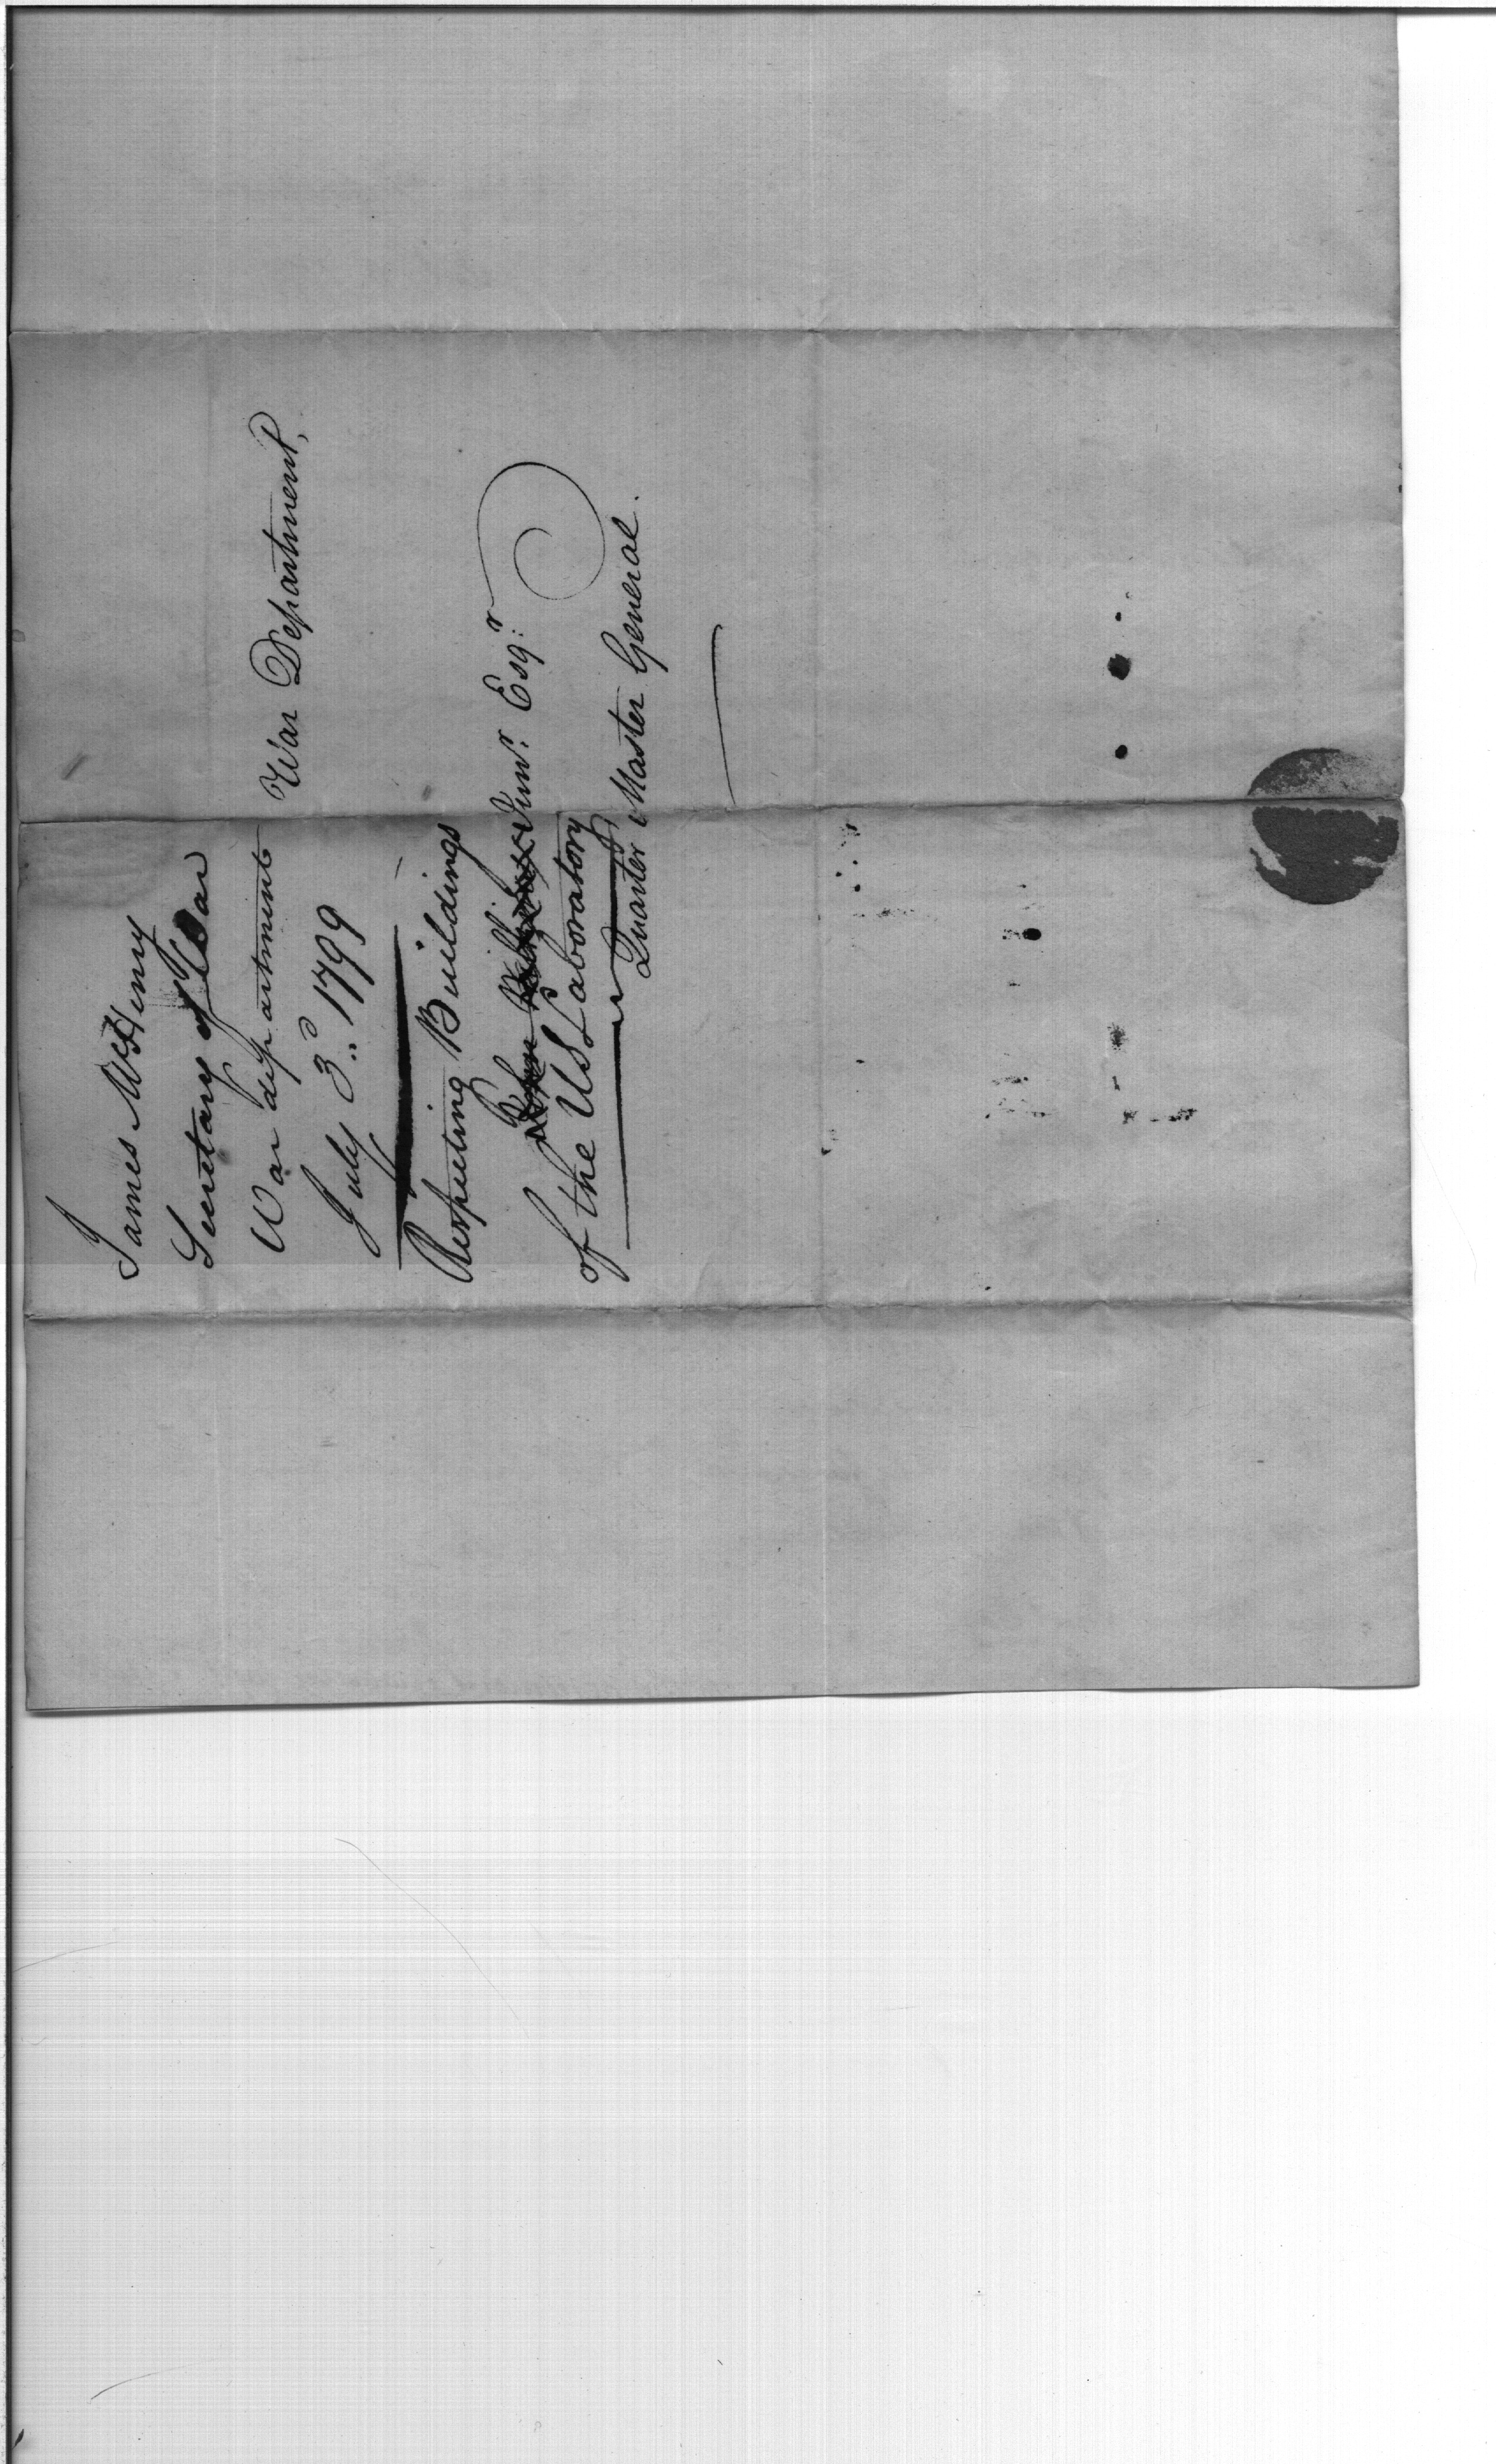 James McHenry
Secretary of War
War department
July 3d. 1799
Respecting Buildings
of the US Laboratory
War Department,
John Wilkins Junr. Esqr.
Quarter Master General.